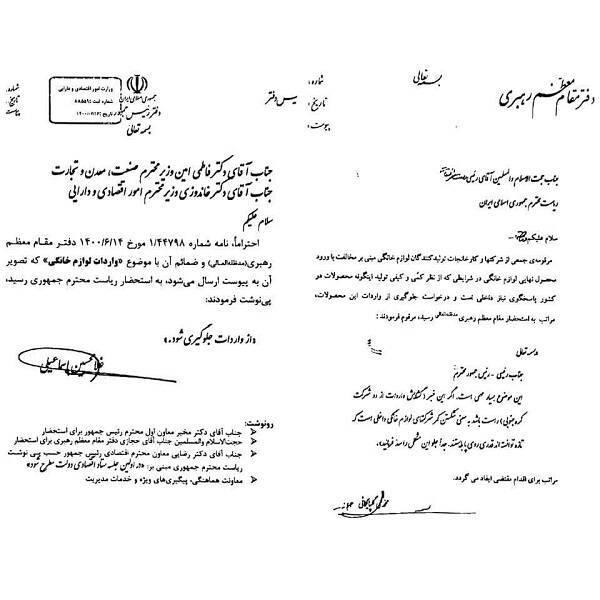 دفتر مقام معظم رهبری
بسمه تعالی
شماره:
تاریخ:
پیوست:
جناب حجت الاسلام والمسلمین آقای رئیسی
ریاست محترم جمهوری اسلامی ایران
سلام علیکم
مرقومه‌ی جمعی از شرکتها و کارخانجات تولیدکنندگان لوازم خانگی مبنی بر مخالفت با ورود
محصول نهایی لوازم خانگی در شرایطی که از نظر کمّی و کیفی تولید اینگونه محصولات در
کشور پاسخگوی نیاز داخلی است و درخواست جلوگیری از واردات این محصولات،
مراتب به استحضار مقام معظم رهبری مدظله‌العالی رسید، مرقوم فرمودند:
بسمه تعالی
جناب رئیسی - رئیس جمهور محترم
این موضوع بسیار مهمی است. اگر این خبر (گشایش واردات از دو شرکت
کره جنوبی) راست باشد به معنی شکستن کمر شرکتهای لوازم خانگی داخلی است که
تازه توانسته‌اند قدری روی پا بایستند. جداً جلو این شکل را سد فرمائید.
مراتب برای اقدام مقتضی ایفاد می گردد.
جمهوری اسلامی ایران
دفتر رئیس جمهور
بسمه تعالی
وزارت امور اقتصادی و دارایی
شماره ثبت ۸۸۵۵۹۴
تاریخ ۱۴۰۰/۰۶/۱۶
رئیس دفتر
شماره:
تاریخ:
پیوست:
جناب آقای دکتر فاطمی امین وزیر محترم صنعت، معدن و تجارت
جناب آقای دکتر خاندوزی وزیر محترم امور اقتصادی و دارایی
سلام علیکم
احتراماً، نامه شماره ۱/۴۴۷۹۸ مورخ ۱۴۰۰/۶/۱۴ دفتر مقام معظم
رهبری(مدظله‌العالی) و ضمائم آن با موضوع «واردات لوازم خانگی» که تصویر
آن به پیوست ارسال می‌شود، به استحضار ریاست محترم جمهوری رسید،
پی‌نوشت فرمودند:
«از واردات جلوگیری شود.»
غلامحسین اسماعیلی
رونوشت:
جناب آقای دکتر مخبر معاون اول محترم رئیس جمهور برای استحضار
حجت‌الاسلام والمسلمین جناب آقای حجازی دفتر مقام معظم رهبری برای استحضار
جناب آقای دکتر رضایی معاون محترم اقتصادی رئیس جمهور حسب پی نوشت
ریاست محترم جمهوری مبنی بر: «در اولین جلسه ستاد اقتصادی دولت مطرح شود»
معاونت هماهنگی، پیگیری‌های ویژه و خدمات مدیریت